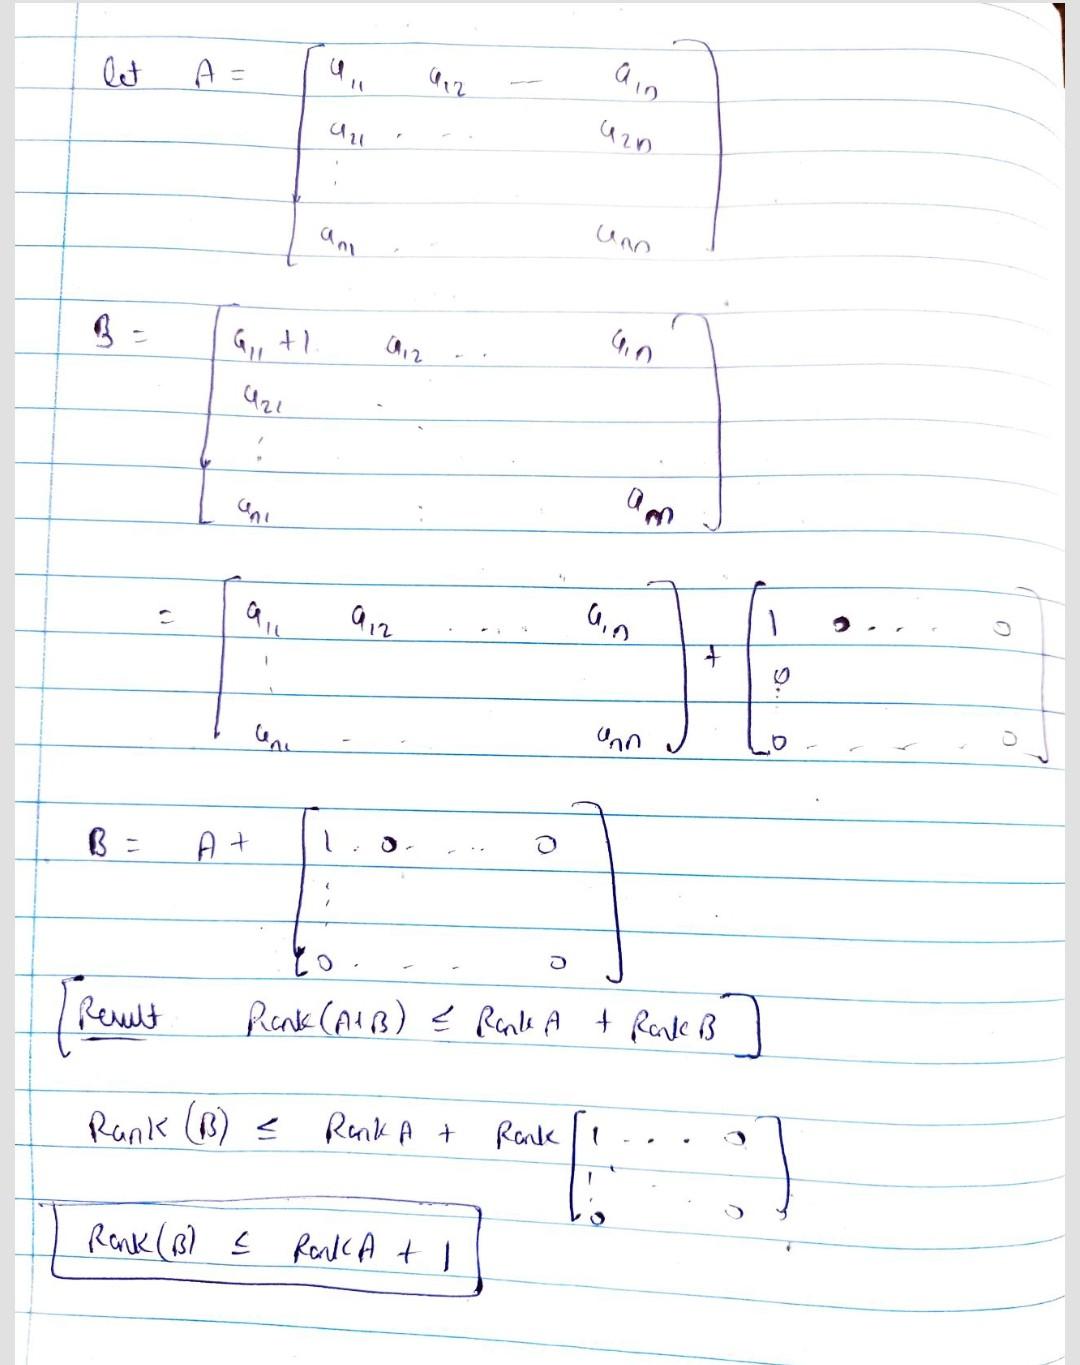 let A = [ a11 a12 — a1n
a21 . - .. a2n
⋮
an1 . . ann ]
B = [ a11 +1 a12 ... a1n
a21 .
⋮
an1 : ann ]
= [ a11 a12 ..... a1n ] + [ 1 0 ... 0
⋮ 0
an1 - . . ann ] 0 . - - - . 0 ]
B = A + [ 1 . 0 . - .. 0
⋮
0 . - - 0 ]
[Result Rank (A+B) ≤ Rank A + Rank B]
Rank (B) ≤ Rank A + Rank [ 1 ... 0
⋮ . .
0 0 ]
Rank (B) ≤ Rank A + 1